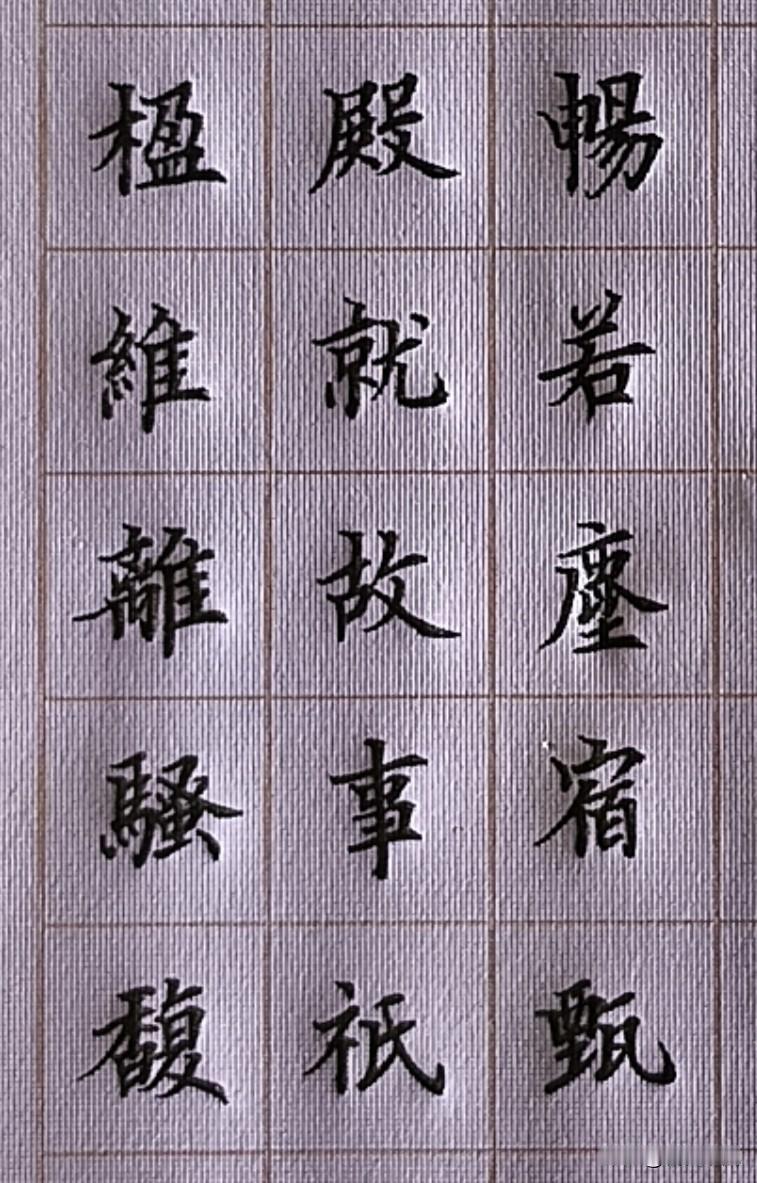 暢若塵宿甄
殿就故事祇
楹維離騷馥